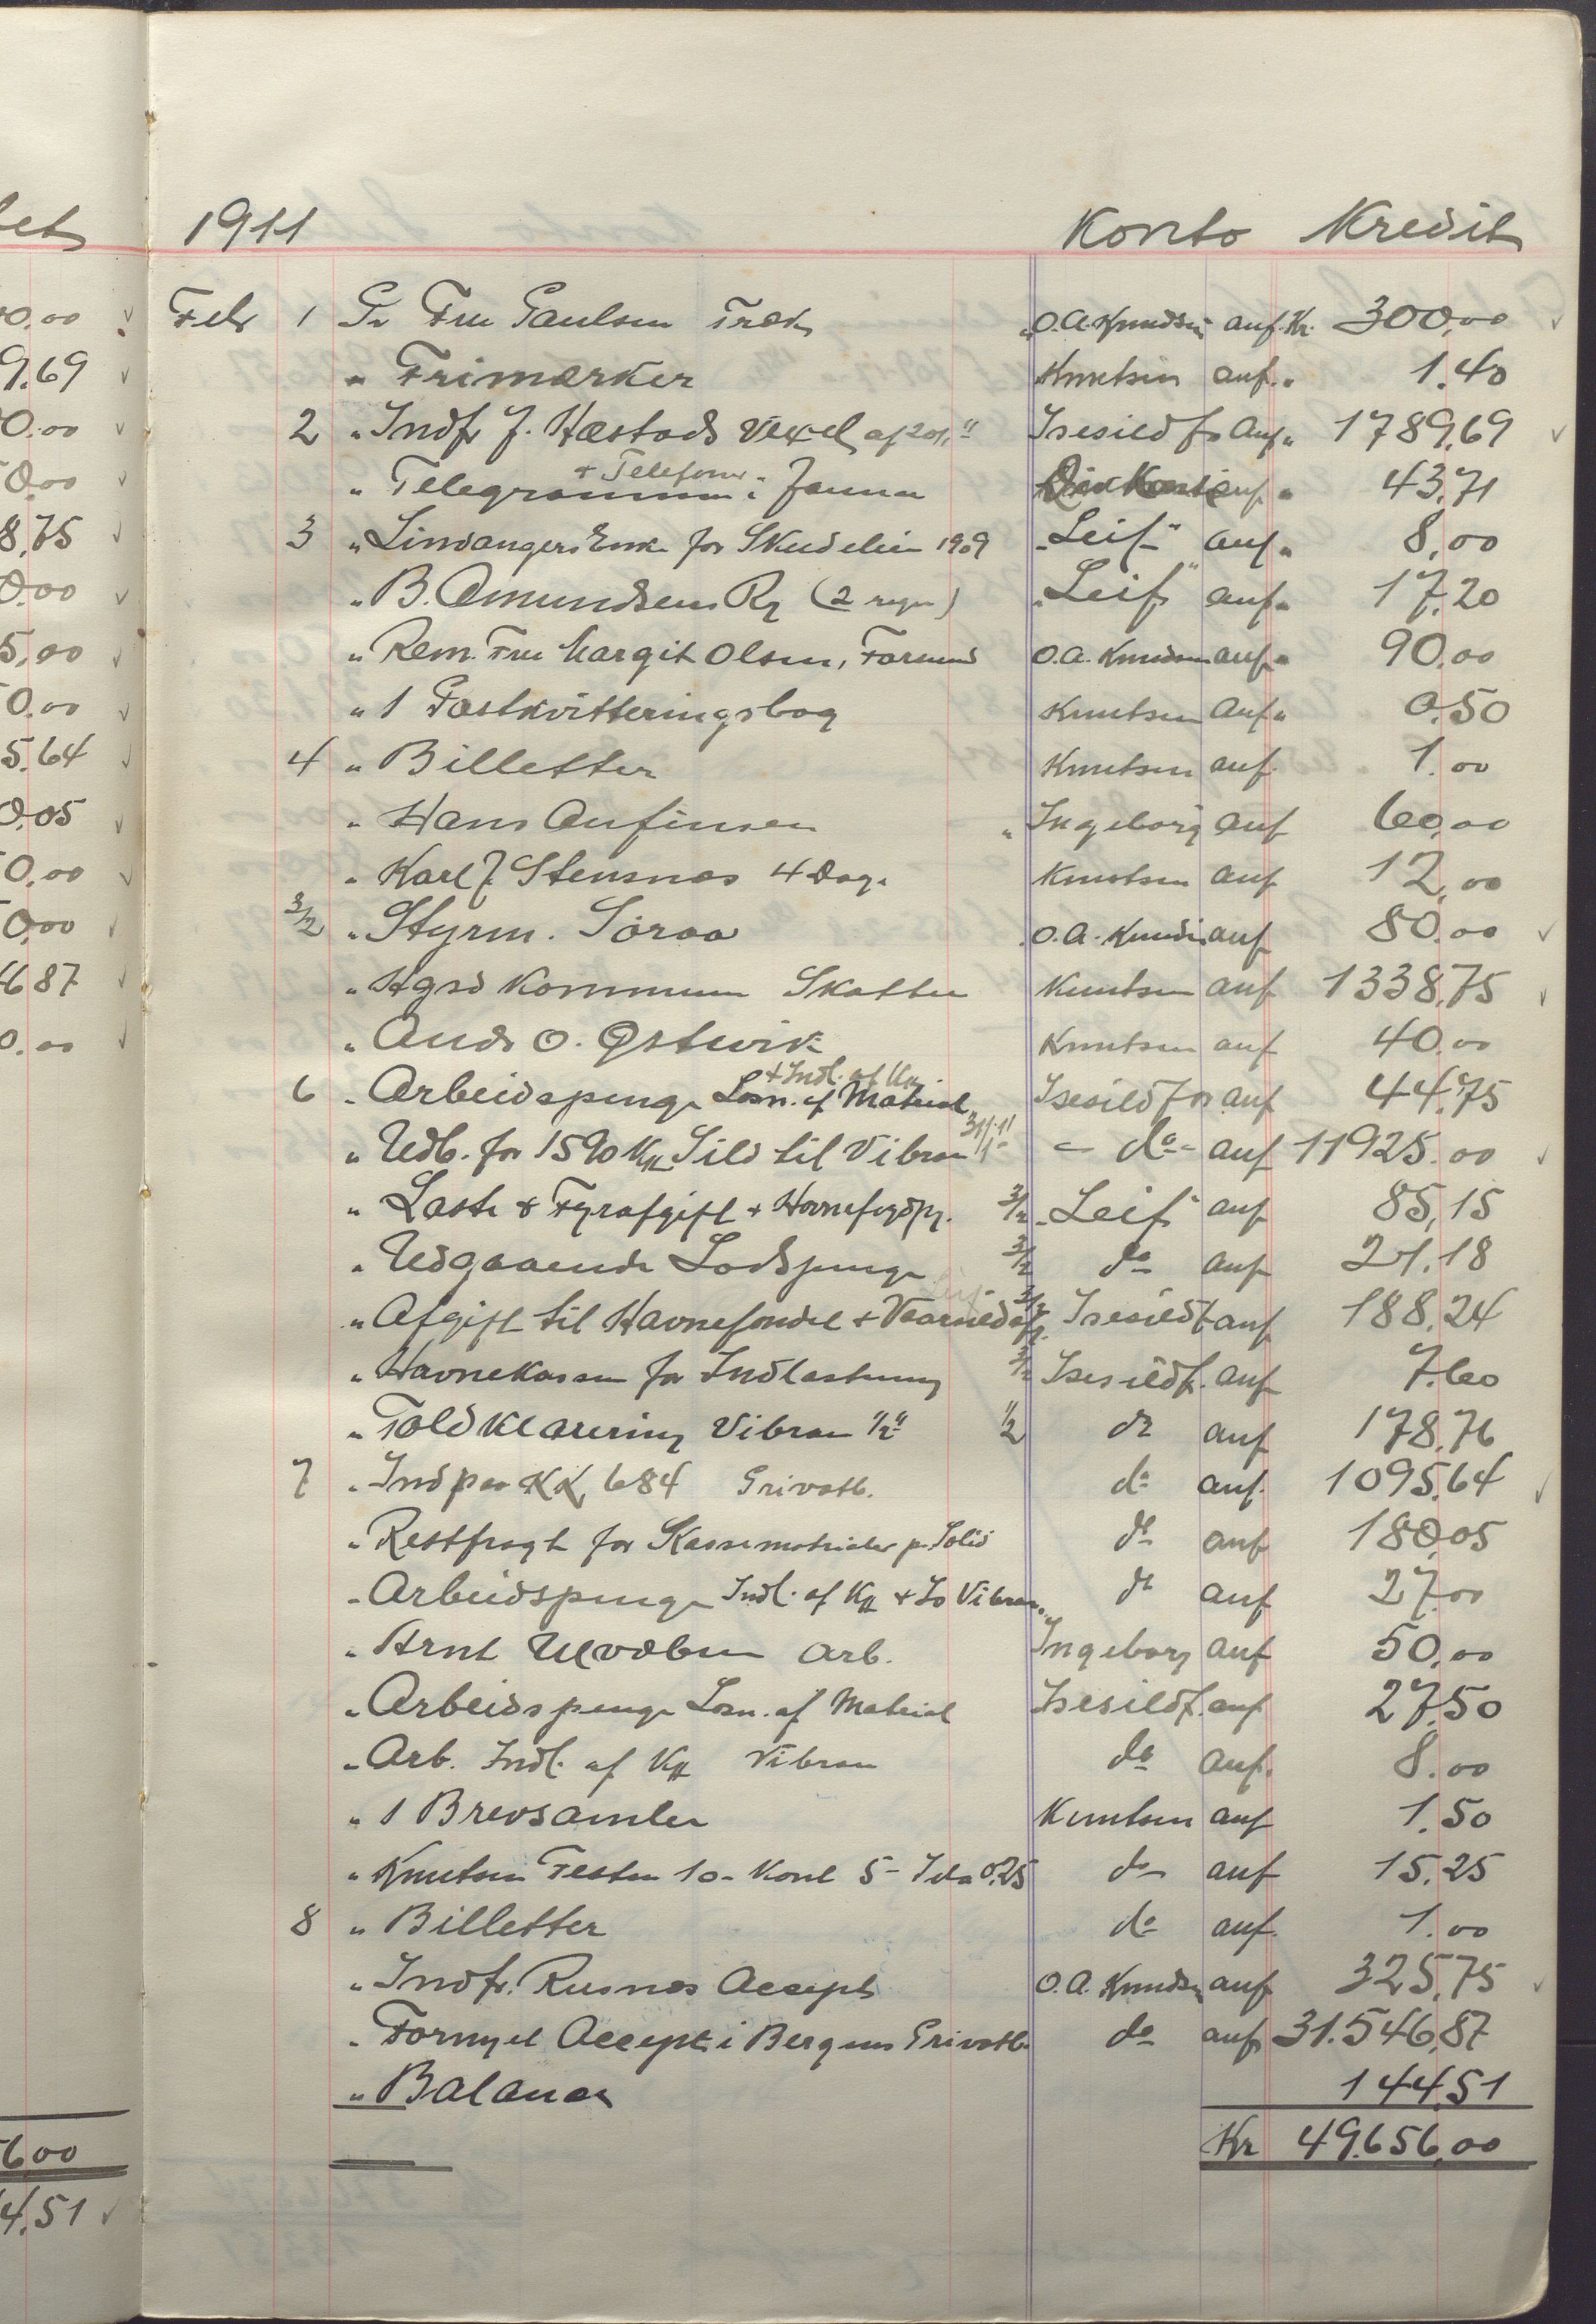 1911 Konto Kredit
Febr 1 Pr Fru Paulsen Træk O.A. Knudsen anf. Kr. 300,00
" Frimærker Knutsen anf. " 1.40
2 " Indfr J. Hæstads Vexel af Isesildf. anf. " 1789,69
+ Telefoner
" Telegrammer i Januar anf. " 43,71
3 " Lindangers Enke for Skudeluin 1909 "Leif" anf " 8,00
" B. Amundsens Rg (2 regn) "Leif" anf " 17.20
" Rem. Fru Margit Olsen, Farsund O.A. Knudsen anf " 90.00
" 1 Postkvitteringsbog Knutsen anf " 0.50
4 " Billetter Knutsen anf. 1.00
" Hans Anfinsen "Ingeborg anf 60,00
" Karl J. Stensnæs 4 Dag. Knutsen anf 12,00
3/2 " Styrm. Søraa O.A. Knudsen anf 80.00
" Hgsd Kommune Skatter Knutsen anf 1338,75
" Ands O. Østevik Knutsen anf 40.00
+ Indl. af
6 " Arbeidspenge Losn. af Material Isesildf. anf 44.75
" Udb. for 1590 Sild til Vibran 31/1 11 - do - anf 11925.00
" Laste & Fyrafgift + Havnefogdpg. 3/2 "Leif" anf 85,15
" Udgaaende Lodspenge 3/2 do anf 21.18
" Afgift til Havnefondet + Vaarsildafg. 3/2 Isesildf anf 188,24
" Havnekassen for Indlastning 3/2 Isesildf. anf 7.60
" Toldklarering Vibran 1/2 11 1/2 do anf 178,76
7 " Indp 684 Privatb. do anf. 1095,64
" Restfragt for Kassematrialer pr Solid do anf 180,05
" Arbeidspenge Indl. af + Vibran do anf 27.00
" Arnt Ulvøben Arb. Ingeborg anf 50,00
" Arbeidspenge Losn. af Material Isesildf. anf 27,50
" Arb. Indl. af Vibran do anf. 8.00
" 1 Brevsamler Knutsen anf 1.50
" Knutsen Testen 10 - Kont 5 - 0.25 do anf 15.25
8 " Billetter do anf. 1.00
" Indfr. Rusnes Accept O.A. Knudsen anf 325,75
" Fornyet Accept i Bergens Privatb do anf 31.546,87
" Balance 144,51
Kr 49.656,00